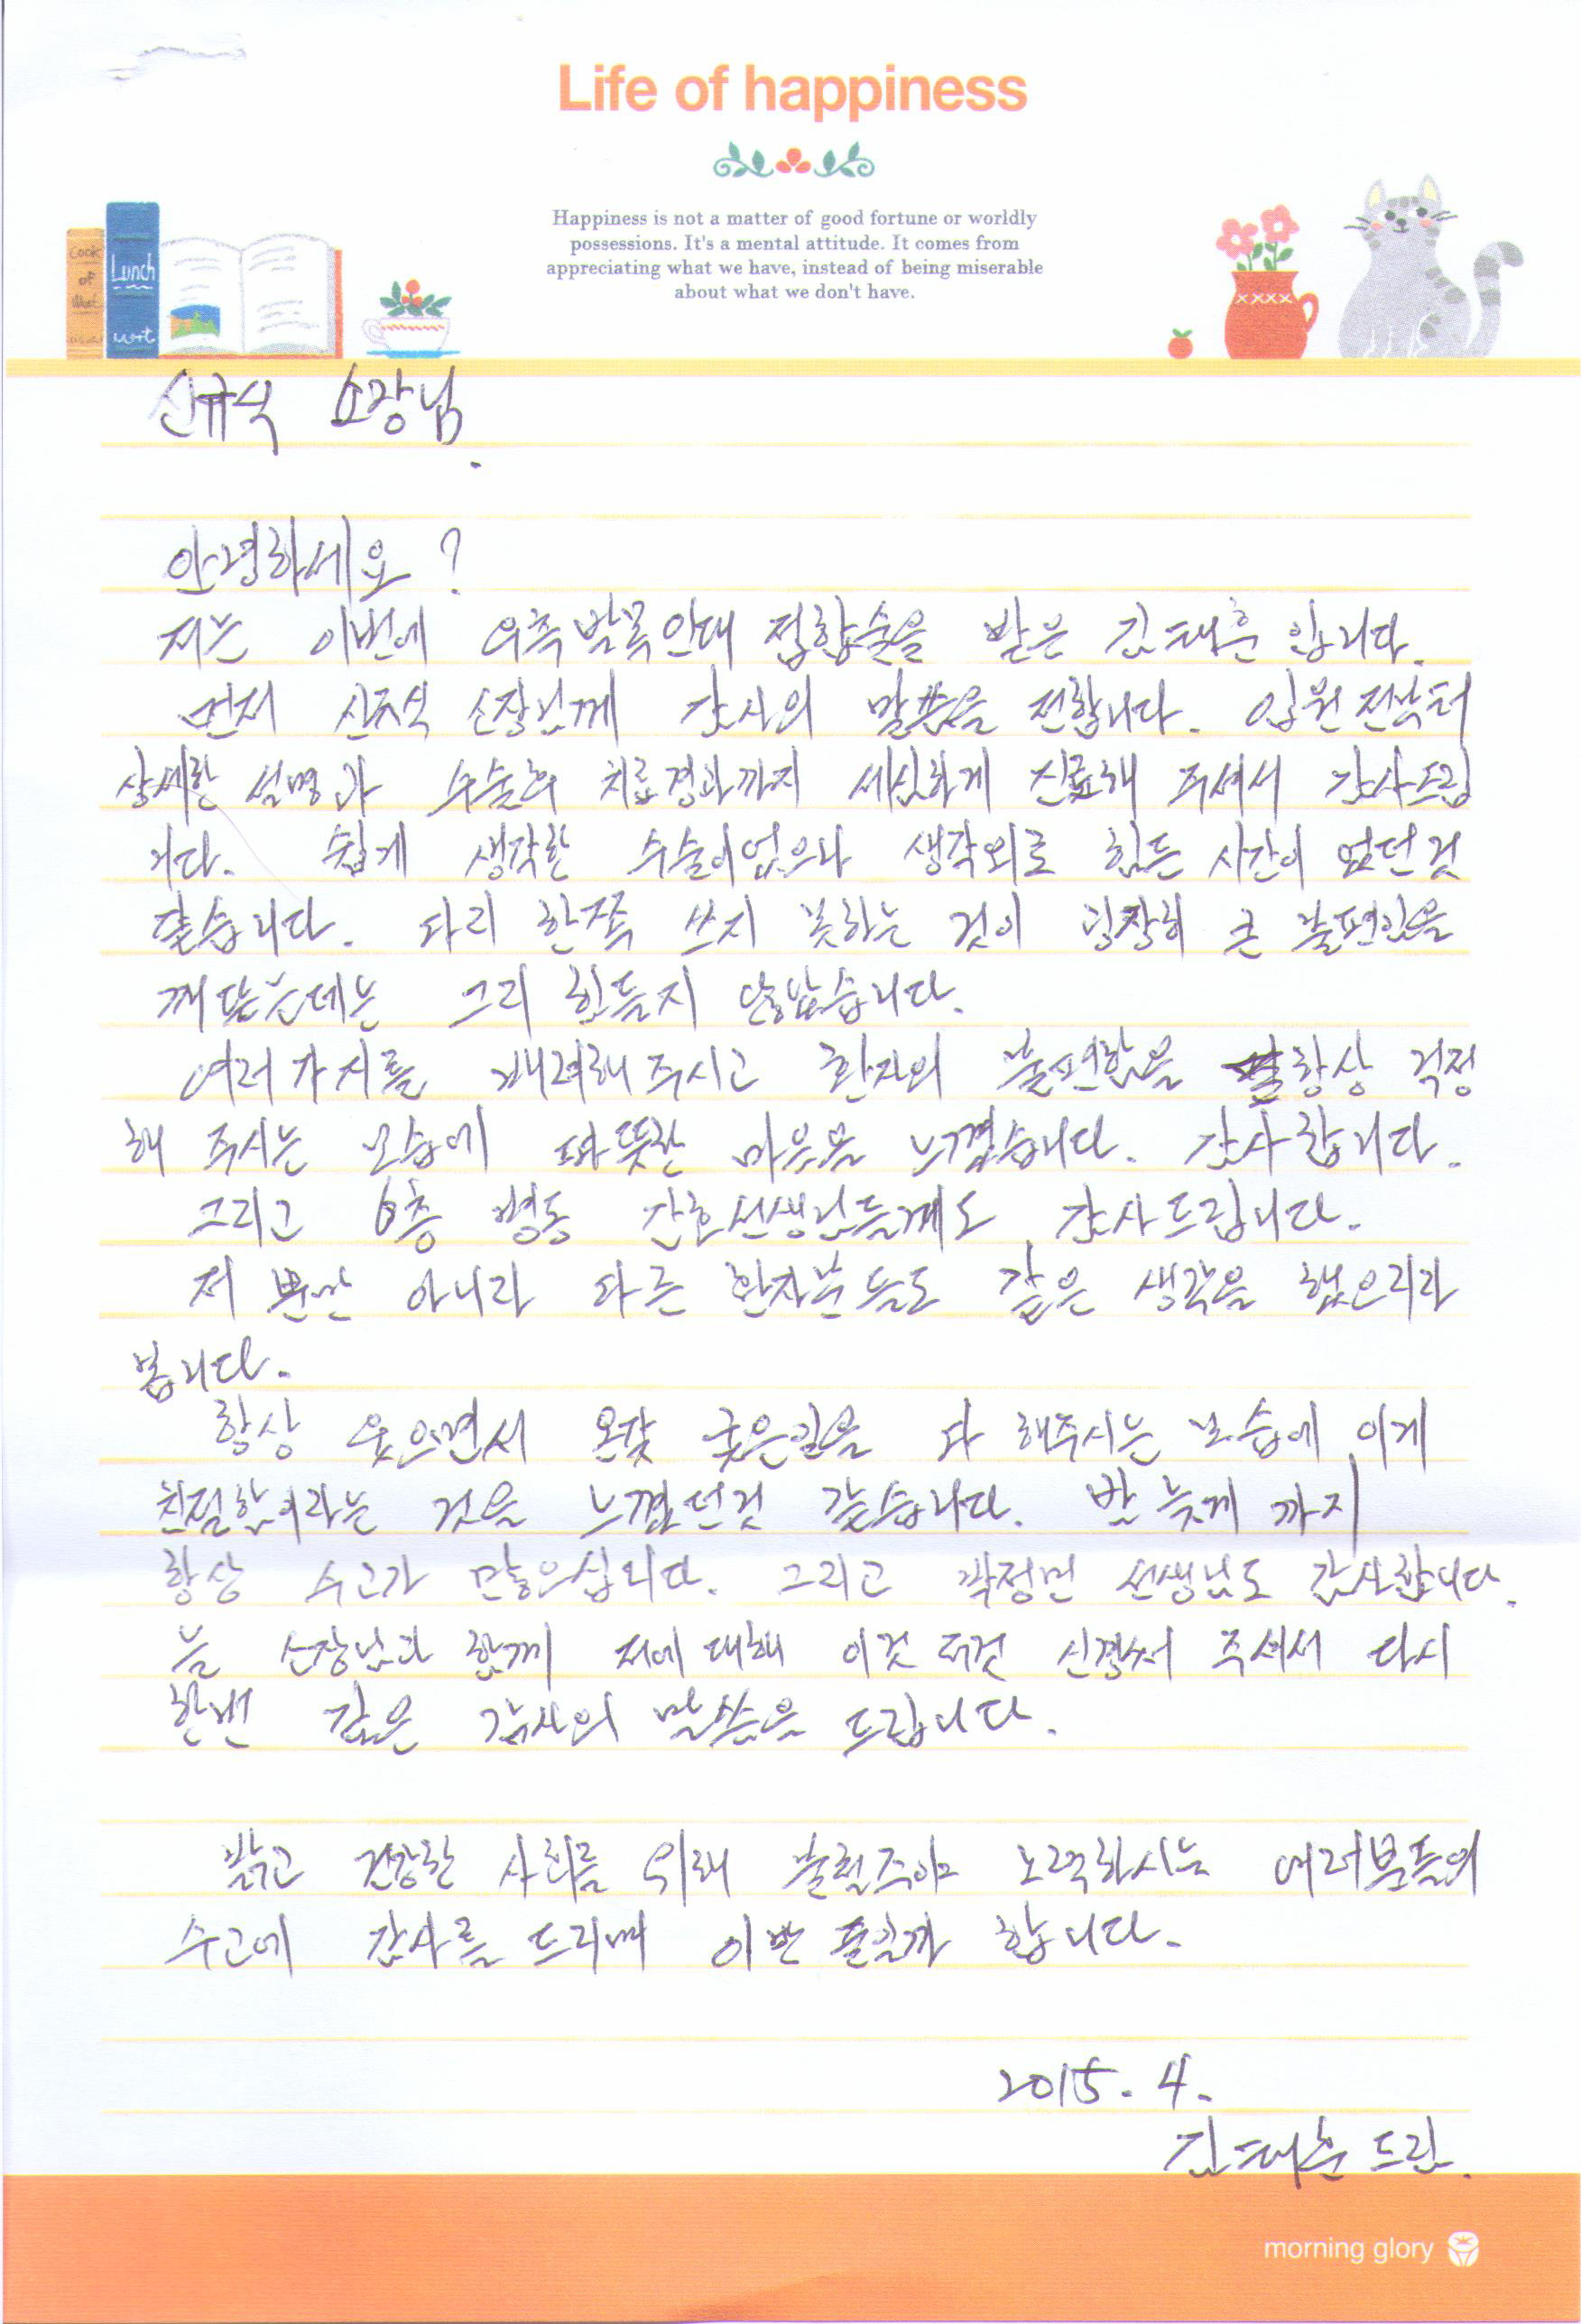 Life of happiness
Happiness is not a matter of good fortune or worldly
possessions. It's a mental attitude. It comes from
appreciating what we have, instead of being miserable
about what we don't have.
Cook
of
Lunch
신규식 소장님.
안녕하세요?
저는 이번에 우측발목인대 접합술을 받은 김태훈 입니다.
먼저 신규식 소장님께 감사의 말씀을 전합니다. 입원전부터
상세한 설명과 수술후 치료경과까지 세심하게 진료해 주셔서 감사드립
니다. 쉽게 생각한 수술이었으나 생각외로 힘든 시간이 었던것
같습니다. 다리 한쪽 쓰지 못하는 것이 굉장히 큰 불편임을
깨닫는데는 그리 힘들지 않았습니다.
여러가지를 배려해주시고 환자의 불편함을 항상 걱정
해 주시는 모습에 따뜻한 마음을 느꼈습니다. 감사합니다.
그리고 6층 병동 간호선생님들께도 감사드립니다.
저 뿐만 아니라 다른 환자분들도 같은 생각을 했으리라
봅니다.
항상 웃으면서 온갖 궂은일을 다 해주시는 모습에 이게
친절함이라는 것을 느꼈던것 같습니다. 밤 늦게 까지
항상 수고가 많으십니다. 그리고 곽정민 선생님도 감사합니다.
늘 소장님과 함께 저에 대해 이것 저것 신경써 주셔서 다시
한번 깊은 감사의 말씀을 드립니다.
밝고 건강한 사회를 위해 불철주야 노력하시는 여러분들의
수고에 감사를 드리며 이만 줄일까 합니다.
2015. 4.
김태훈 드림.
morning glory